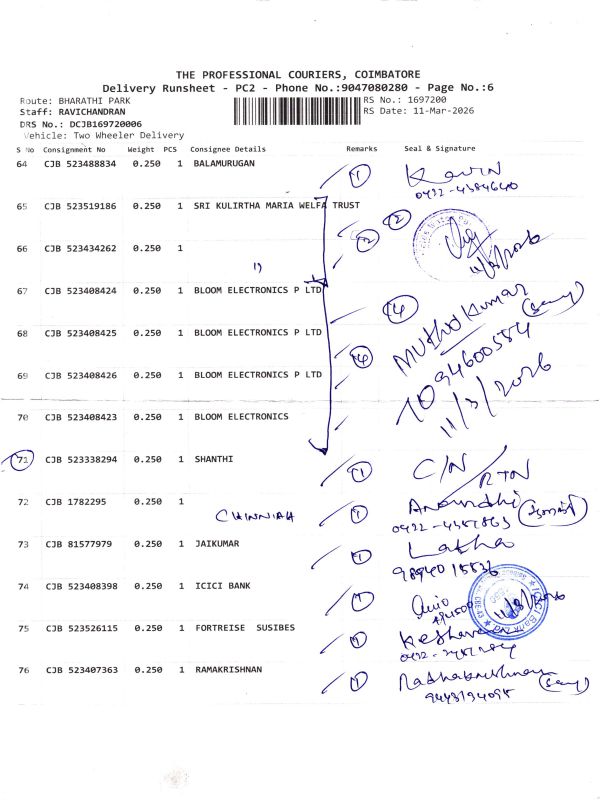 THE PROFESSIONAL COURIERS, COIMBATORE
Delivery Runsheet - PC2 - Phone No.:9047080280 - Page No.:6
Route: BHARATHI PARK
RS No.: 1697200
Staff: RAVICHANDRAN
RS Date: 11-Mar-2026
DRS No.: DCJB169720006
Vehicle: Two Wheeler Delivery
S No Consignment No Weight PCS Consignee Details Remarks Seal & Signature
64 CJB 523488834 0.250 1 BALAMURUGAN 1 Kavin
0422-4384640
65 CJB 523519186 0.250 1 SRI KULIRTHA MARIA WELFA TRUST 2
66 CJB 523434262 0.250 1 2 11/3/2026
11
67 CJB 523408424 0.250 1 BLOOM ELECTRONICS P LTD 4 Muthukumar
68 CJB 523408425 0.250 1 BLOOM ELECTRONICS P LTD 4
69 CJB 523408426 0.250 1 BLOOM ELECTRONICS P LTD
11/3/2026
70 CJB 523408423 0.250 1 BLOOM ELECTRONICS
71 CJB 523338294 0.250 1 SHANTHI 1 C/N / RTN
72 CJB 1782295 0.250 1 1
CHINNIAH
73 CJB 81577979 0.250 1 JAIKUMAR 1 Latha
74 CJB 523408398 0.250 1 ICICI BANK 1 11/3/2026
75 CJB 523526115 0.250 1 FORTREISE SUSIBES 1
76 CJB 523407363 0.250 1 RAMAKRISHNAN 1 Radhakrishnan